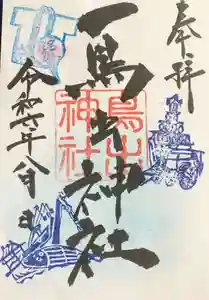 奉拝
鳥出神社
鳥出
神社
令和六年八月